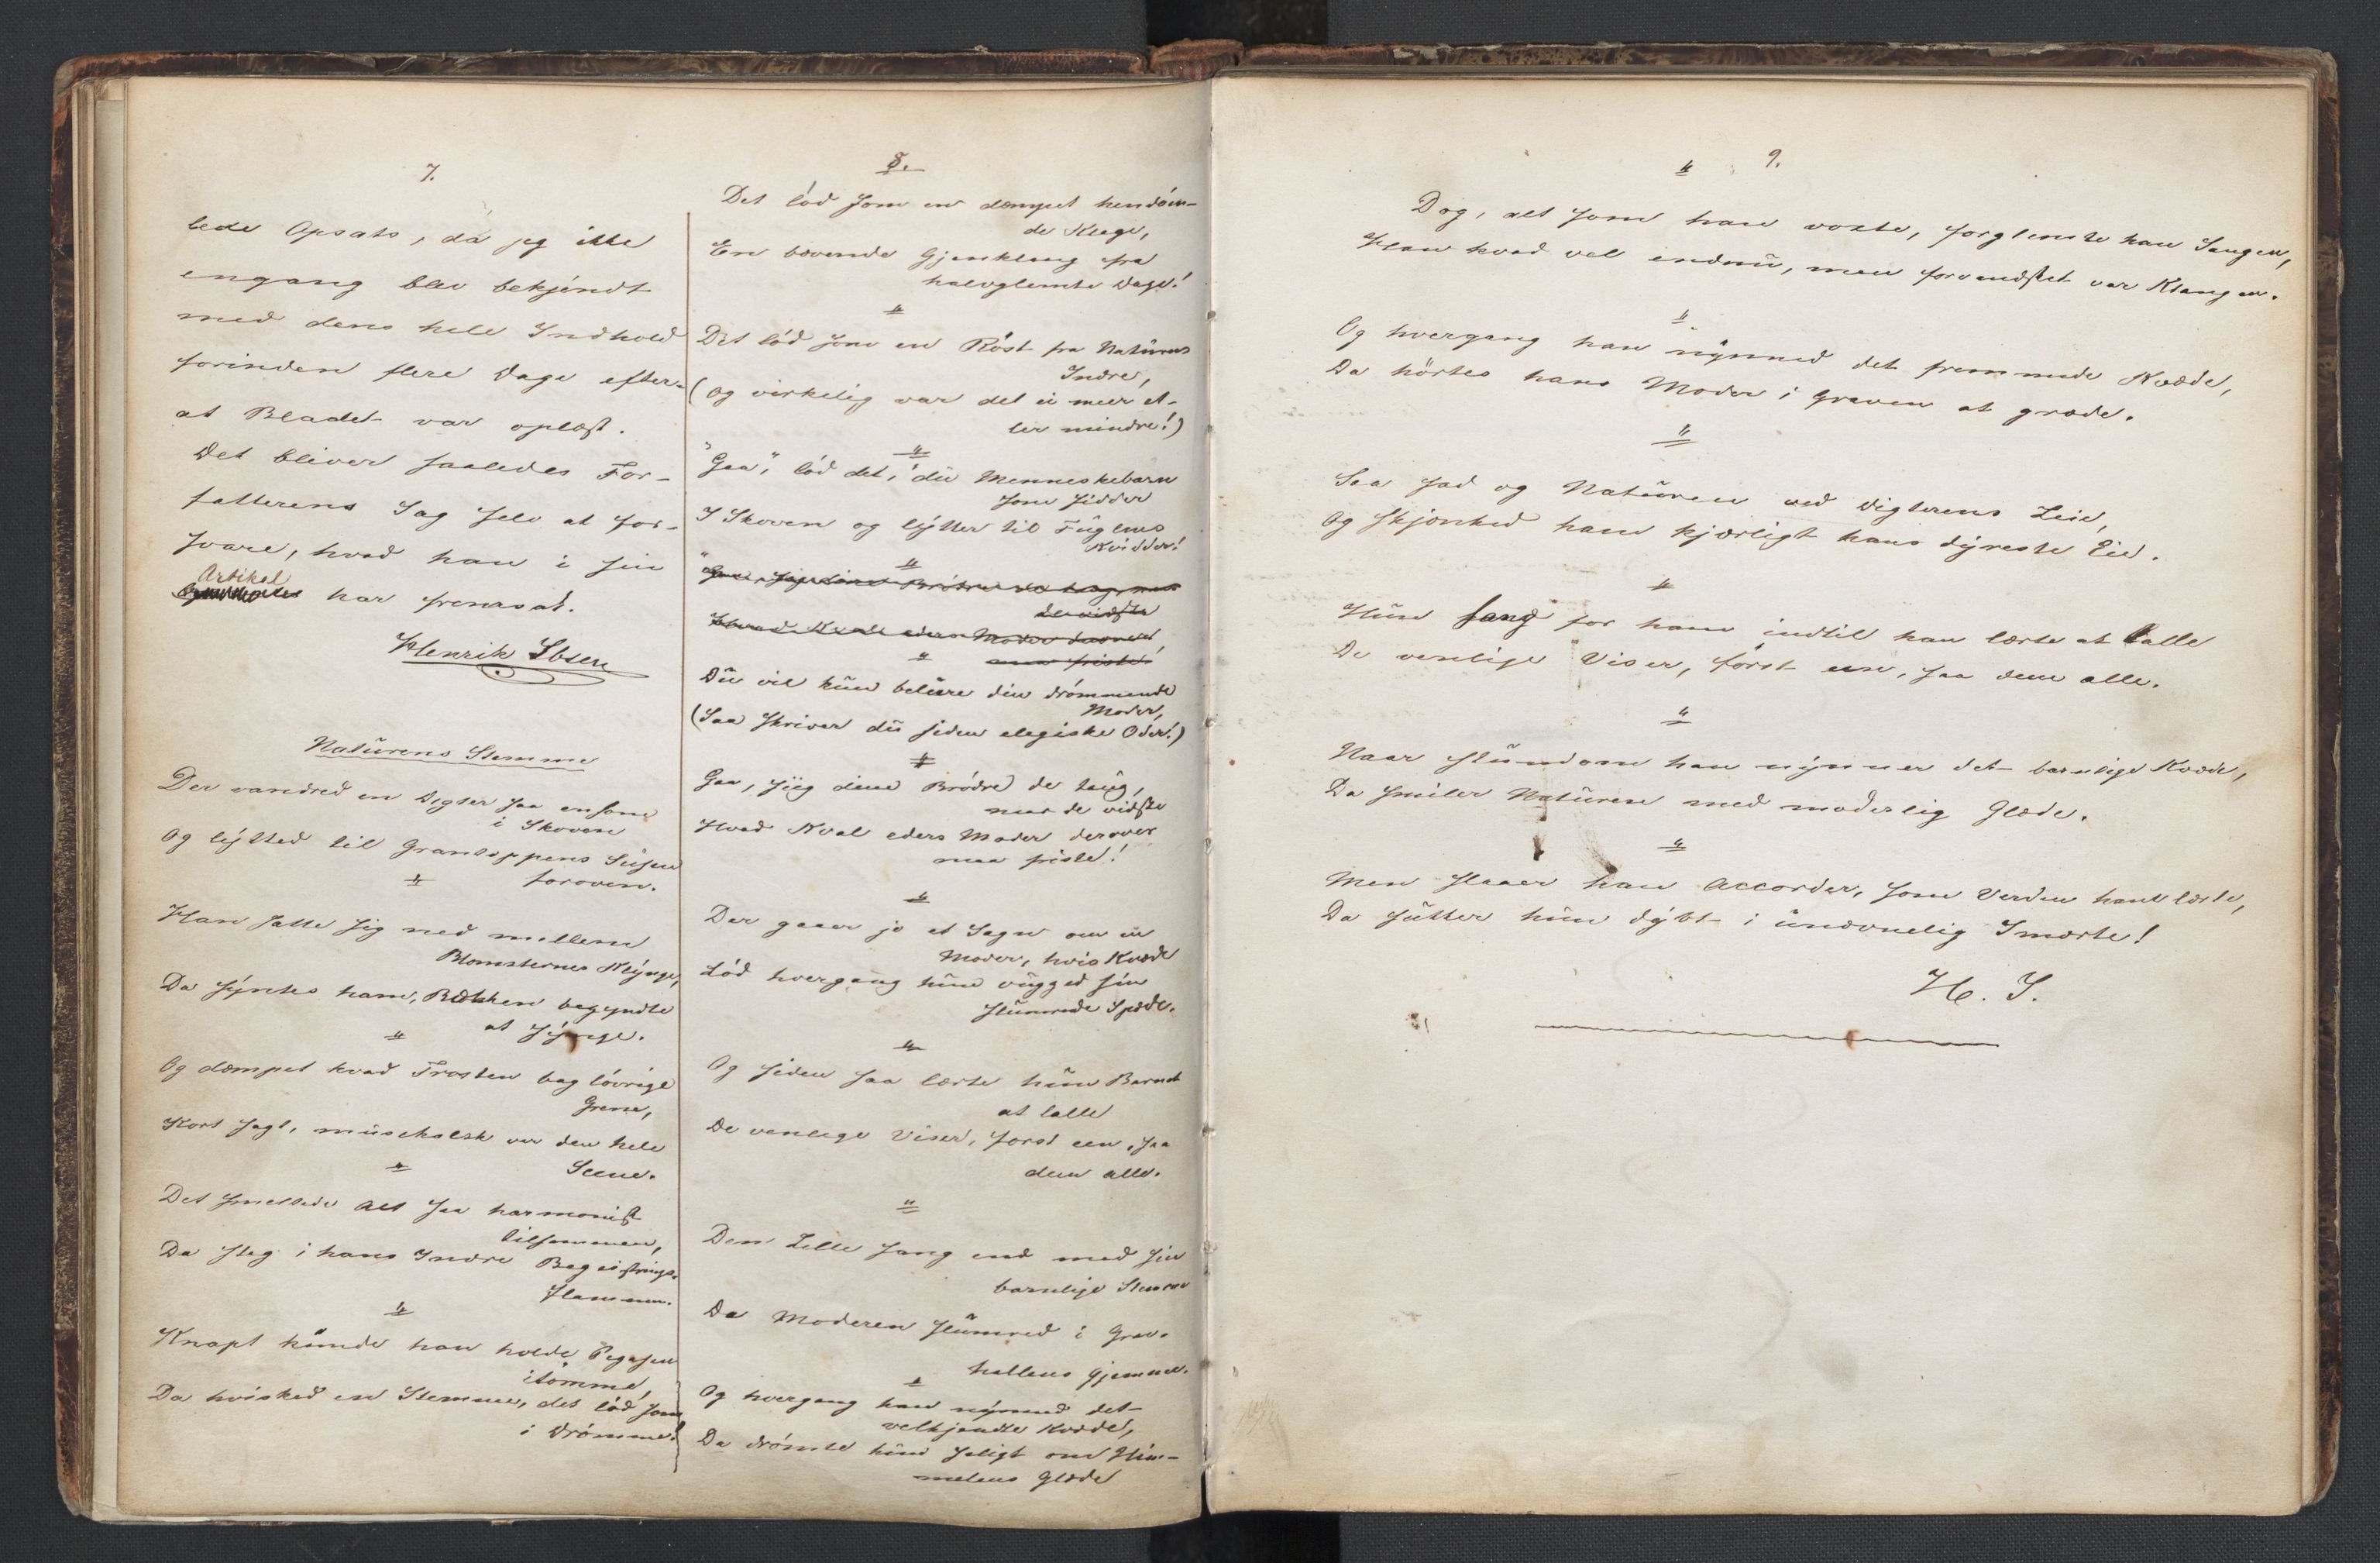 7.
lede Opsats, da jeg ikke
engang blev bekjendt
med dens hele Indhold
forinden flere Dage efter-
at Bladet var oplæst.
Det bliver saaledes For-
fatterens Sag selv at for-
svare, hvad han i sin
Artikel
har fremsat.
Henrik Ibsen
Natürens Stemme
Der vandred en Digter saa ensom
i Skoven
Og lytted til Grantoppens Süsen
foroven.
"
Han satte sig ned mellem
Blomsternes Klynge,
Da syntes ham, Bækken begyndte
at synge.
"
Og dæmpet kvad Trosten bag lövrige
Grene,
Kort sagt, müsikalsk var den hele
Scene.
"
Det smeltede alt saa harmonisk
tilsammen,
Da steg i hans Indre Begeistrings-
flammen.
"
Knapt künde han holde Pegasen
itömme,
Da hvisked en Stemme, det lød som
i Drömme!
8.
Det lød som en dæmpet hendöen-
de Klage,
En bævende Gjenklang fra
halvglemte Dage!
"
Det lød som en Röst fra Natürens
Indre,
(Og virkelig var det ei meer el-
ler mindre!)
"
"Gaa", lød det, "dü Menneskebarn
som sidder
I Skoven og lytter til Füglens
Kvidder!
"
"Gaa, siig dine Brödre de taug, naar
de vidste
Hvad Kval eders Moder derover
maa friste!
"
Dü vil kün belüre din drömmende
Moder,
(Saa skriver dü siden elegiske Oder!)
"
Gaa, siig dine Brödre de taug,
naar de vidste
Hvad Kval eders Moder derover
maa friste!
"
Der gaaer jo et Sagn om en
Moder, hvis Kvæde
Lød hvergang hün vügged sin
slümrende Spæde.
"
Og siden saa lærte hün Barnet
at lalle
De venlige Viser, først een, saa
dem alle.
"
Den Lille sang end med sin
barnlige Stemme
Da Moderen slümred i Grav-
hallens Gjemme.
"
Og hvergang han nynned det
velkjendte Kvæde,
Da drömte hün saligt om Him-
melens Glæde
9.
"
Dog, alt som han voxte, forglemte han Sangen,
Han kvad vel endnü, men forvandsket var Klangen.
"
Og hvergang han nynned det fremmede Kvæde,
Da hörtes hans Moder i Graven at græde.
"
Saa sad og Natüren ved Digterens Leie,
Og skjænked ham kjærligt hans dyreste Eie.
"
Hün sang for ham indtil han lærte at lalle
De venlige Viser, först een, saa dem alle.
"
Naar stündom han nynner det barnlige Kvæde,
Da smiler Natüren med moderlig Glæde.
"
Men slaaer han Accorder, som Verden ham lærte,
Da sükker hün dybt i ünævnelig Smærte!
H. I.